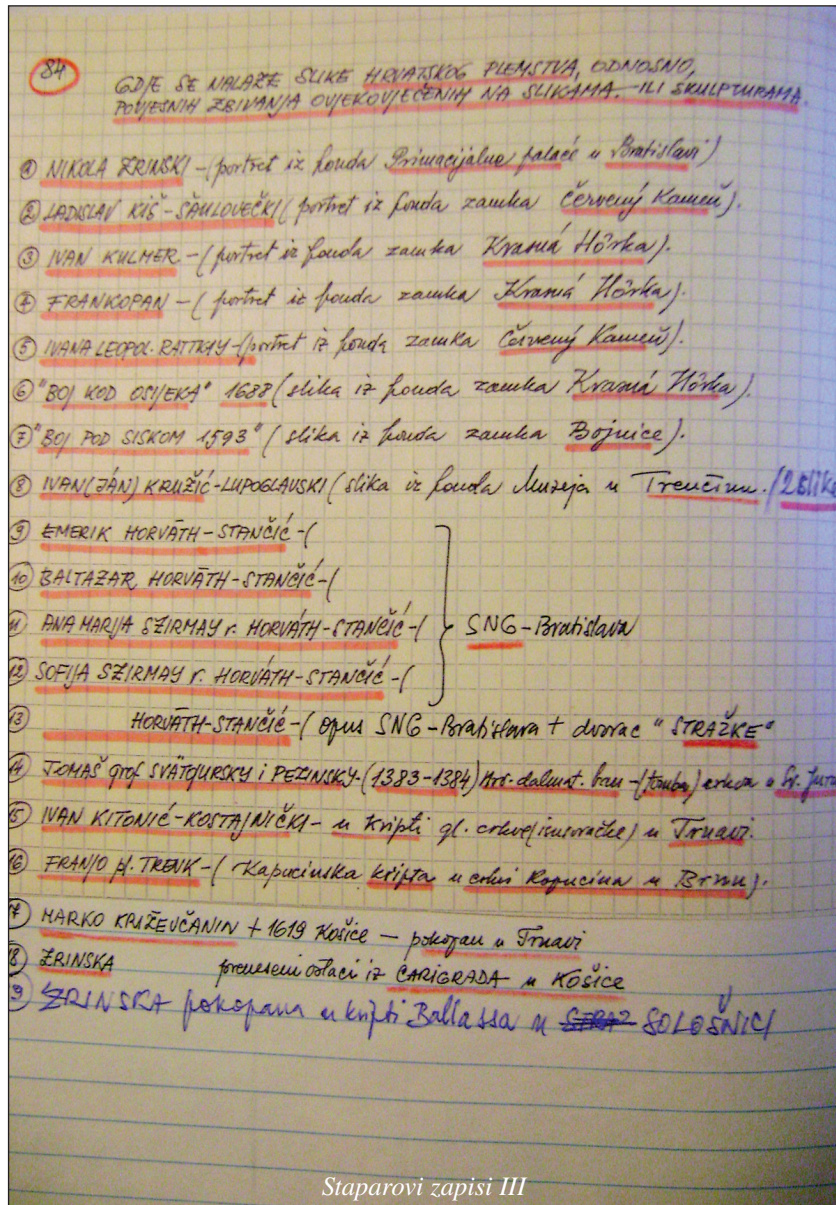 84
GDJE SE NALAZE SLIKE HRVATSKOG PLEMSTVA, ODNOSNO,
POVJESNIH ZBIVANJA OVJEKOVJEČENIH NA SLIKAMA. ILI SKULPTURAMA.
① NIKOLA ZRINSKI - (portret iz fonda Primacijalne palače u Bratislavi)
② LADISLAV KIŠ - ŠAULOVEČKI (portret iz fonda zamka Červený Kameň).
③ IVAN KULMER - (portret iz fonda zamka Krasná Hôrka).
④ FRANKOPAN - (portret iz fonda zamka Krasná Hôrka).
⑤ IVANA LEOPOL. RATTKAY - (portret iz fonda zamka Červený Kameň).
⑥ "BOJ KOD OSIJEKA" 1688 (slika iz fonda zamka Krasná Hôrka).
⑦ "BOJ POD SISKOM 1593" (slika iz fonda zamka Bojnice).
⑧ IVAN (JÁN) KRUŽIĆ - LUPOGLAVSKI (slika iz fonda Muzeja u Trenčinu. /2 slike
⑨ EMERIK HORVÁTH - STANČIĆ - (
⑩ BALTAZAR HORVÁTH - STANČIĆ - (
⑪ ANA MARIJA SZIRMAY r. HORVÁTH - STANČIĆ - (
SNG - Bratislava
⑫ SOFIJA SZIRMAY r. HORVÁTH - STANČIĆ - (
⑬ HORVÁTH - STANČIĆ - ( opus SNG - Bratislava + dvorac "STRAŽKE"
⑭ TOMAŠ grof SVÄTOJURSKY i PEZINSKY - (1383-1384) Hrv. dalmat. ban - (tomba) crkva u Sv. Jura
⑮ IVAN KITONIĆ - KOSTAJNIČKI - u kripti gl. crkve (isusovačke) u Trnavi.
⑯ FRANJO pl. TRENK - ( Kapucinska kripta u crkvi Kapucina u Brnu).
17 MARKO KRIŽEVČANIN + 1619 Košice - pokopan u Trnavi
18 ZRINSKA preneseni ostaci iz CARIGRADA u KOŠICE
19 ZRINSKA pokopana u kripti Ballassa u SOLOŠNICI
Staparovi zapisi III